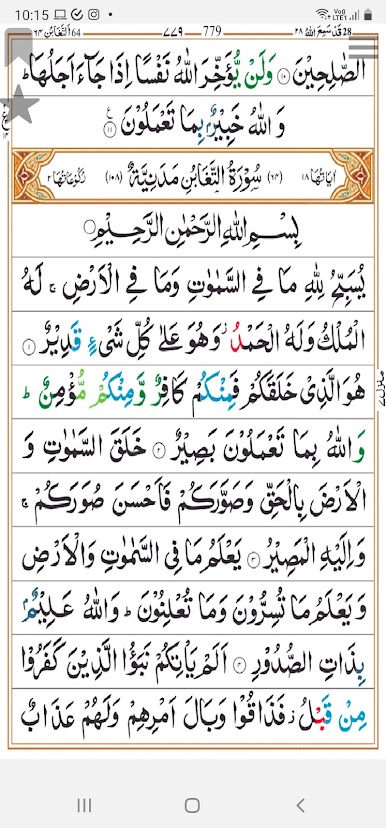 10:15 VoD LTE1
٦٤ التَّغَابُن 64 ٧٧٩ 779 قَدْ سَمِعَ اللّٰهُ ٢٨ 28
الصّٰلِحِيْنَ ۝١٠ وَلَنْ يُّؤَخِّرَ اللّٰهُ نَفْسًا اِذَا جَآءَ اَجَلُهَا ؕ
وَ اللّٰهُ خَبِيْرٌۢ بِمَا تَعْمَلُوْنَ ۝١١
اٰيَاتُهَا ١٨ (٦٤) سُوْرَةُ التَّغَابُنِ مَدَنِيَّةٌ (١٠٨) رُكُوْعَاتُهَا ٢
بِسْمِ اللّٰهِ الرَّحْمٰنِ الرَّحِيْمِ
يُسَبِّحُ لِلّٰهِ مَا فِي السَّمٰوٰتِ وَمَا فِي الْاَرْضِ ۚ لَهُ
الْمُلْكُ وَلَهُ الْحَمْدُ ؗ وَهُوَ عَلٰى كُلِّ شَيْءٍ قَدِيْرٌ ۝١
هُوَ الَّذِيْ خَلَقَكُمْ فَمِنْكُمْ كَافِرٌ وَّمِنْكُمْ مُّؤْمِنٌ ؕ
وَاللّٰهُ بِمَا تَعْمَلُوْنَ بَصِيْرٌ ۝٢ خَلَقَ السَّمٰوٰتِ وَ
الْاَرْضَ بِالْحَقِّ وَصَوَّرَكُمْ فَاَحْسَنَ صُوَرَكُمْ ۚ
وَاِلَيْهِ الْمَصِيْرُ ۝٣ يَعْلَمُ مَا فِي السَّمٰوٰتِ وَالْاَرْضِ
وَيَعْلَمُ مَا تُسِرُّوْنَ وَمَا تُعْلِنُوْنَ ؕ وَاللّٰهُ عَلِيْمٌۢ
بِذَاتِ الصُّدُوْرِ ۝٤ اَلَمْ يَاْتِكُمْ نَبَؤُا الَّذِيْنَ كَفَرُوْا
مِنْ قَبْلُ ؗ فَذَاقُوْا وَبَالَ اَمْرِهِمْ وَلَهُمْ عَذَابٌ